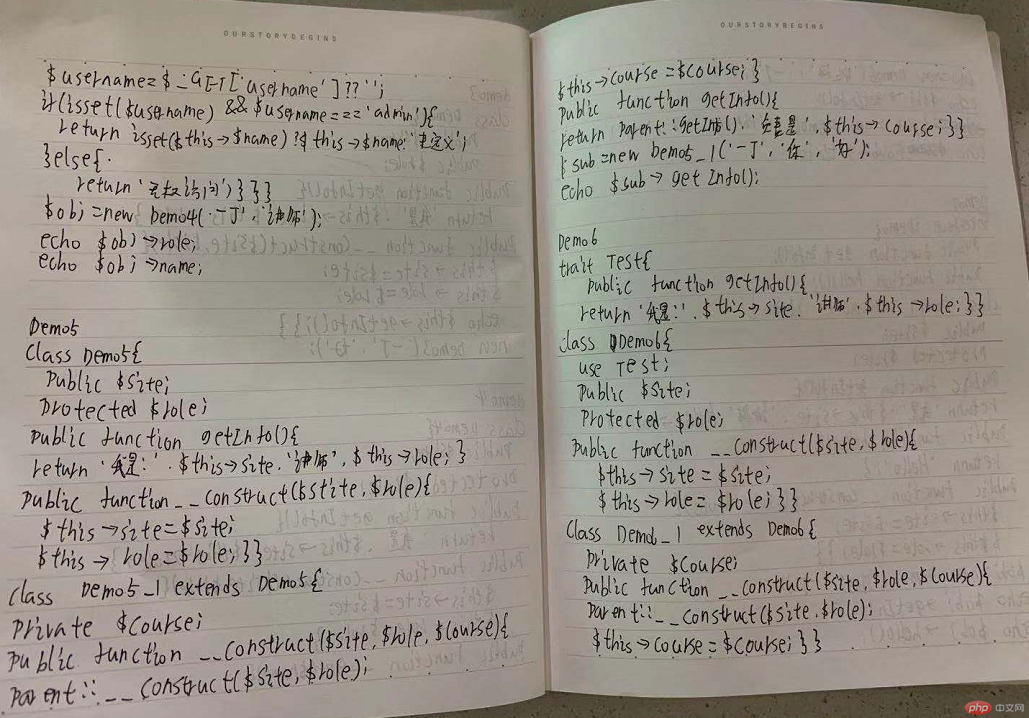 OURSTORYBEGINS
$username=$_GET['username']??'';
if(isset($username) && $username==='admin'){
return isset($this->$name)?$this->$name:'未定义';
}else{
return '无权访问')}}}
$obj=new Demo4('一丁','讲师');
echo $obj->role;
echo $obj->name;
Demo5
Class Demo5{
Public $site;
Protected $role;
Public function getInfo(){
return '我是:'.$this->site.'讲师'.$this->role;}
Public function __construct($stite,$role){
$this->site=$site;
$this->role=$role;}}
class Demo5_1 extends Demo5{
Private $Course;
Public function __construct($site,$role,$course){
Parent::__construct($site,$role);
OURSTORYBEGINS
$this->Course=$Course;}
Public function getInfo(){
return Parent::getInfo().'负责是'.$this->Course;}}
$sub=new Demo5_1('一丁','你','好');
echo $sub->getInfo();
Demo6
trait Test{
Public function getInfo(){
return '我是:'.$this->site.'讲师'.$this->role;}}
class Demo6{
use Test;
Public $site;
Protected $role;
Public function __construct($site,$role){
$this->site=$site;
$this->role=$role;}}
Class Demo6_1 extends Demo6{
Private $Course;
Public function __construct($site,$role,$Course){
Parent::__construct($site,$role);
$this->Course=$Course;}}
php 中文网